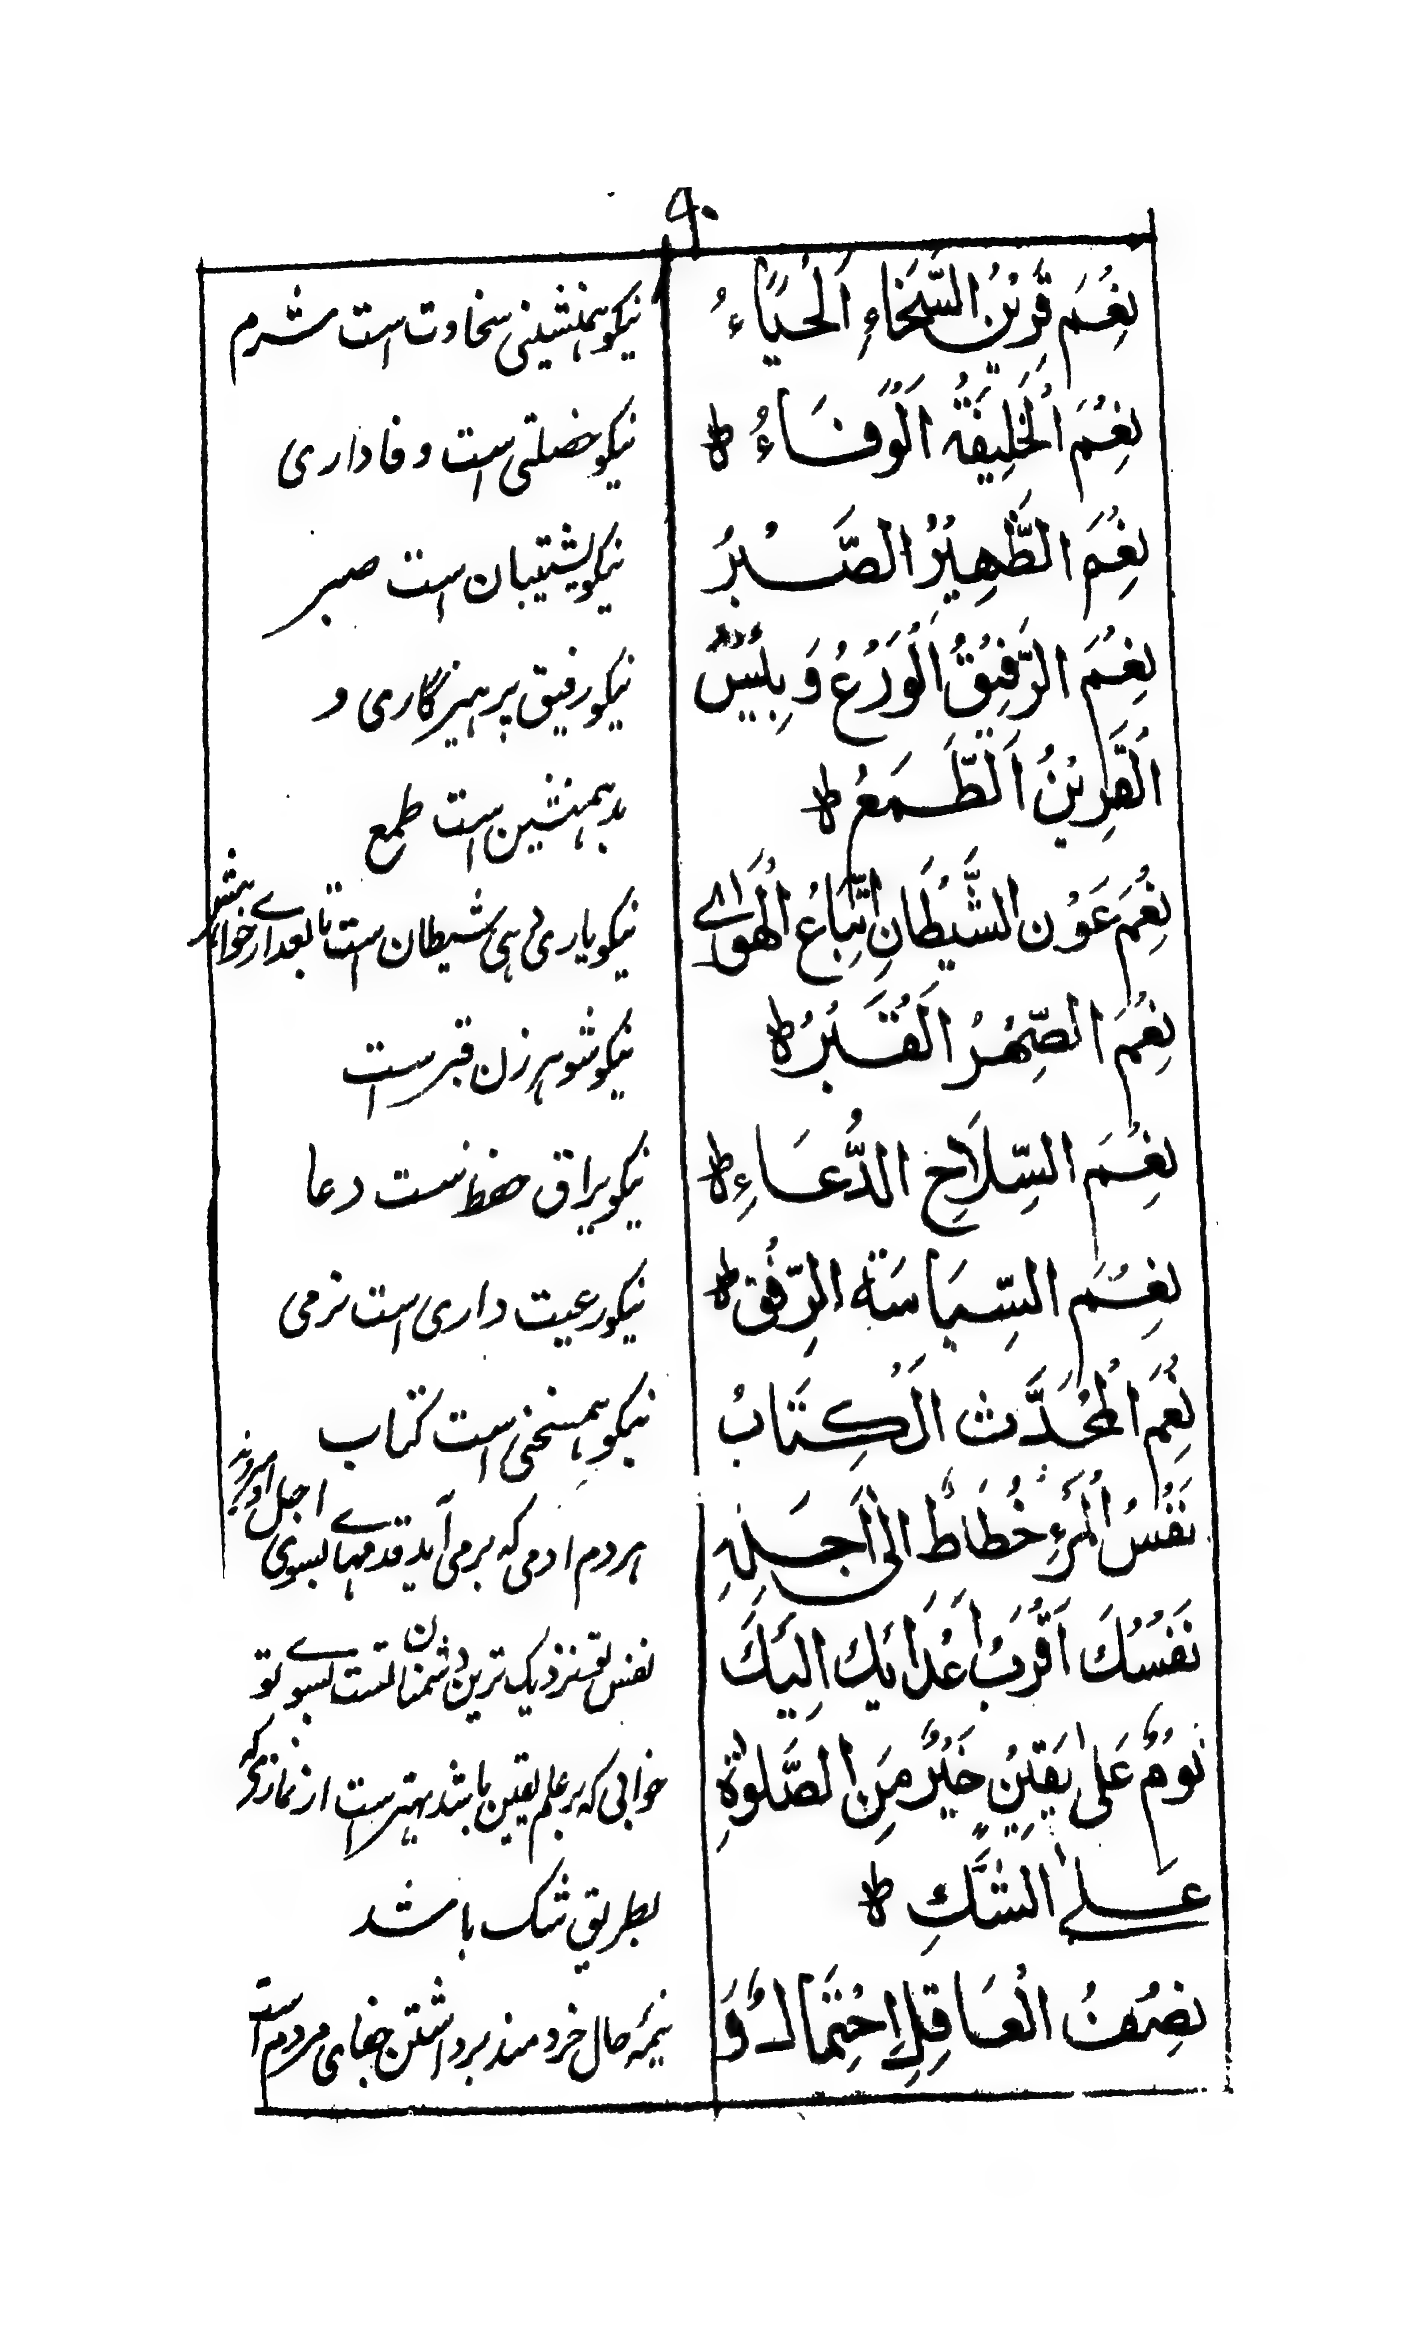 ۹۰
نِعْمَ قَرِيْنُ السَّخَاءِ اَلْحَيَاءُ
نیکو همنشینی سخاوت است شرم
نِعْمَ الْخَلِيْفَةُ اَلْوَفَاءُ ط
نیکو خصلتی است وفاداری
نِعْمَ الظَّهِيْرُ الصَّبْرُ
نیکو پشتیبان است صبر
نِعْمَ الرَّفِيْقُ اَلْوَرَعُ وَ بِئْسَ
نیکو رفیق پرهیزگاری و
اَلْقَرِيْنُ اَلطَّمَعُ ط
بد همنشین است طمع
نِعْمَ عَوْن الشَّيْطَانِ اتِّبَاعُ الْهَوٰاے
نیکو یاری دهی شیطان است تابعدارے خواهشو
نِعْمَ الصِّهْرُ اَلْقَبْرُ ط
نیکو شوهر زن قبر است
نِعْمَ السِّلَاحِ الدُّعَاءِ ط
نیکو یراق حفظ ست دعا
نِعْمَ السِّيَاسَة الرِّفْق ط
نیکو رعیت داری است نرمی
نِعْمَ الْمُحَدَّث الْكِتَابُ
نیکو همسخنی است کتاب
نَفْسُ الْمَرْءِ خُطَاطٌ الٰى اَجَلِهِ
هر دم ادمی که برمی آید قدمهاے بسوی اجل او
نَفْسُكَ اَقْرَبُ اَعْدَائِك اِلَيْكَ
نفس تو نزدیک ترین دشمنان تست بسوے تو
نَوْمٌ عَلىٰ يَقِيْنٍ خَيْرٌ مِنَ الصَّلٰوةِ
خوابی که بر علم یقین باشد بهتر است از نمازی که
عَلے الشَّكِ ط
بطریق شک باشد
نِصْفُ الْعَاقِلِ اِحْتِمَالٌ وَ
نیمه حال خردمند برداشتن جفای مردم است